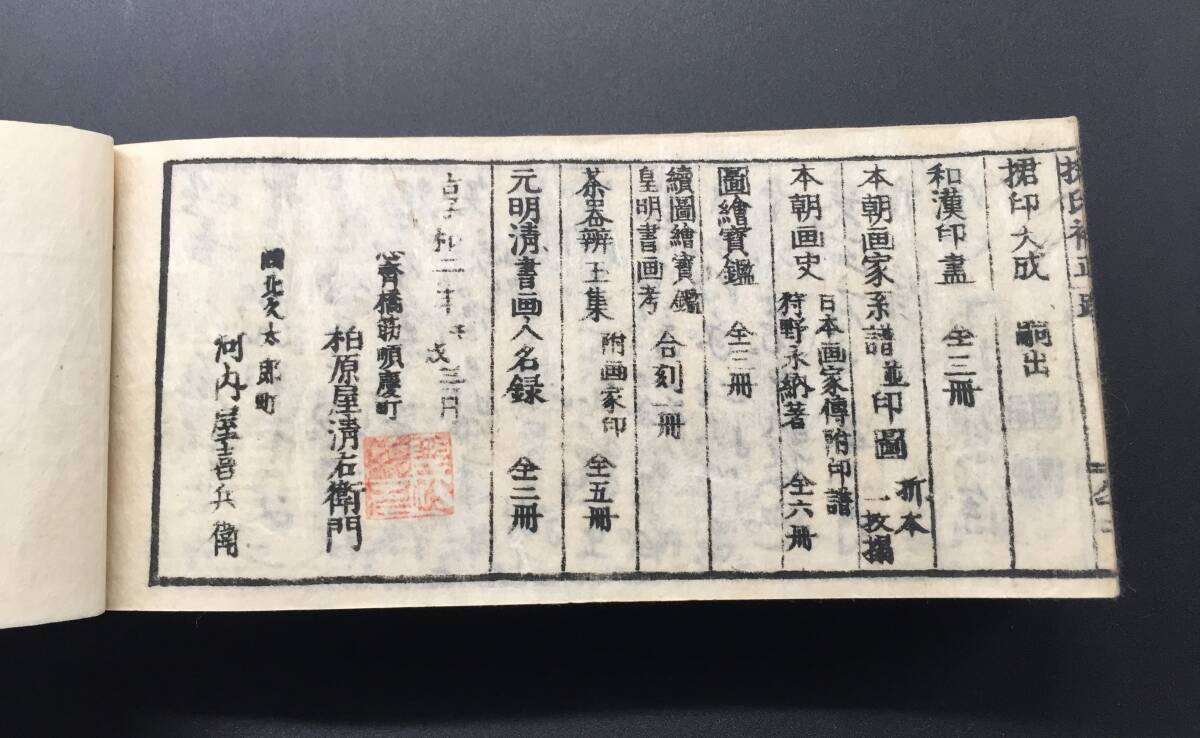 捃印大成 嗣出
和漢印盡 全三冊
本朝画家系譜並印圖 折本一枚摺
本朝画史 日本画家傳附印譜 狩野永納著 全六冊
圖繪寳鑑 全三冊
續圖繪寳鑑
皇明書画考 合刻一冊
茶器辨玉集 附画家印 全五冊
元明清書画人名録 全二冊
享和二年
心齊橋筋順慶町
柏原屋清右衛門
同北久太郎町
河内屋喜兵衛